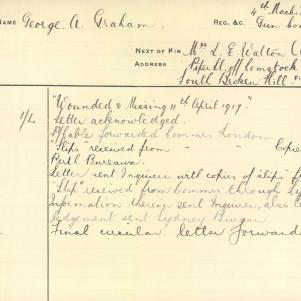 NAME George A. Graham. REG. &c. 4th Machi
Gun Com
NEXT OF KIN Mrs L. E. Walton (
ADDRESS Piper & Comstock
South Broken Hill.
1/L "Wounded & Missing 11th April 1917."
Letter acknowledged.
Cable forwarded Commrs London.
"Slips" received from " " Copie
Perth Bureau.
Letter sent Inquirer with copies of slips"
"Slip" received from Commrs through Sy
Information therein sent Inquirer, also
ledgement sent Sydney Bureau.
Final circular letter forwarde